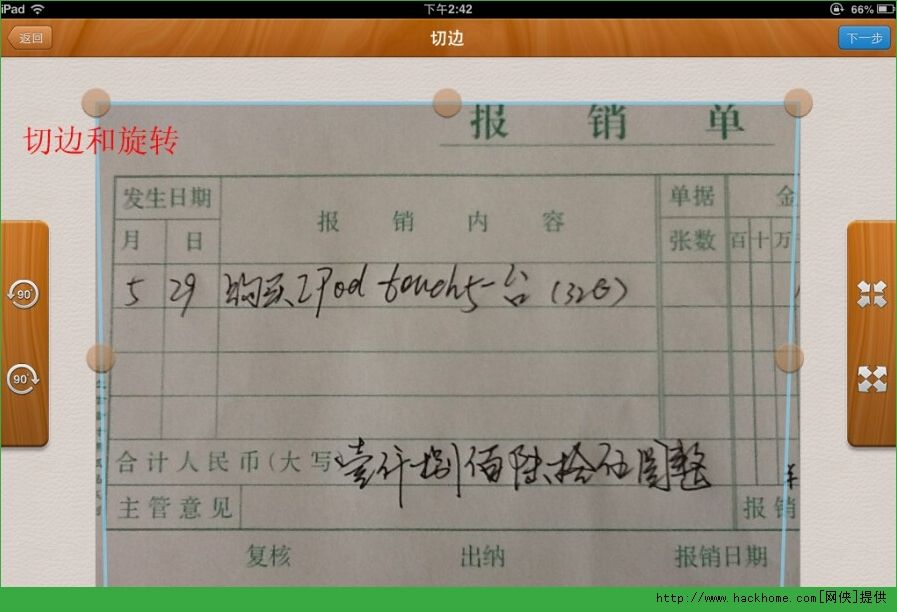 iPad 下午2:42 66%
返回 切边 下一步
切边和旋转
报 销 单
发生日期 报 销 内 容 单据 金
月 日 张数 百 十 万
5 29 购买IPod touch5一台(32G)
合计人民币(大写 壹仟捌佰陆拾伍圆整
主管意见 报销
复核 出纳 报销日期
90°
90°
http://www.hackhome.com[网侠]提供